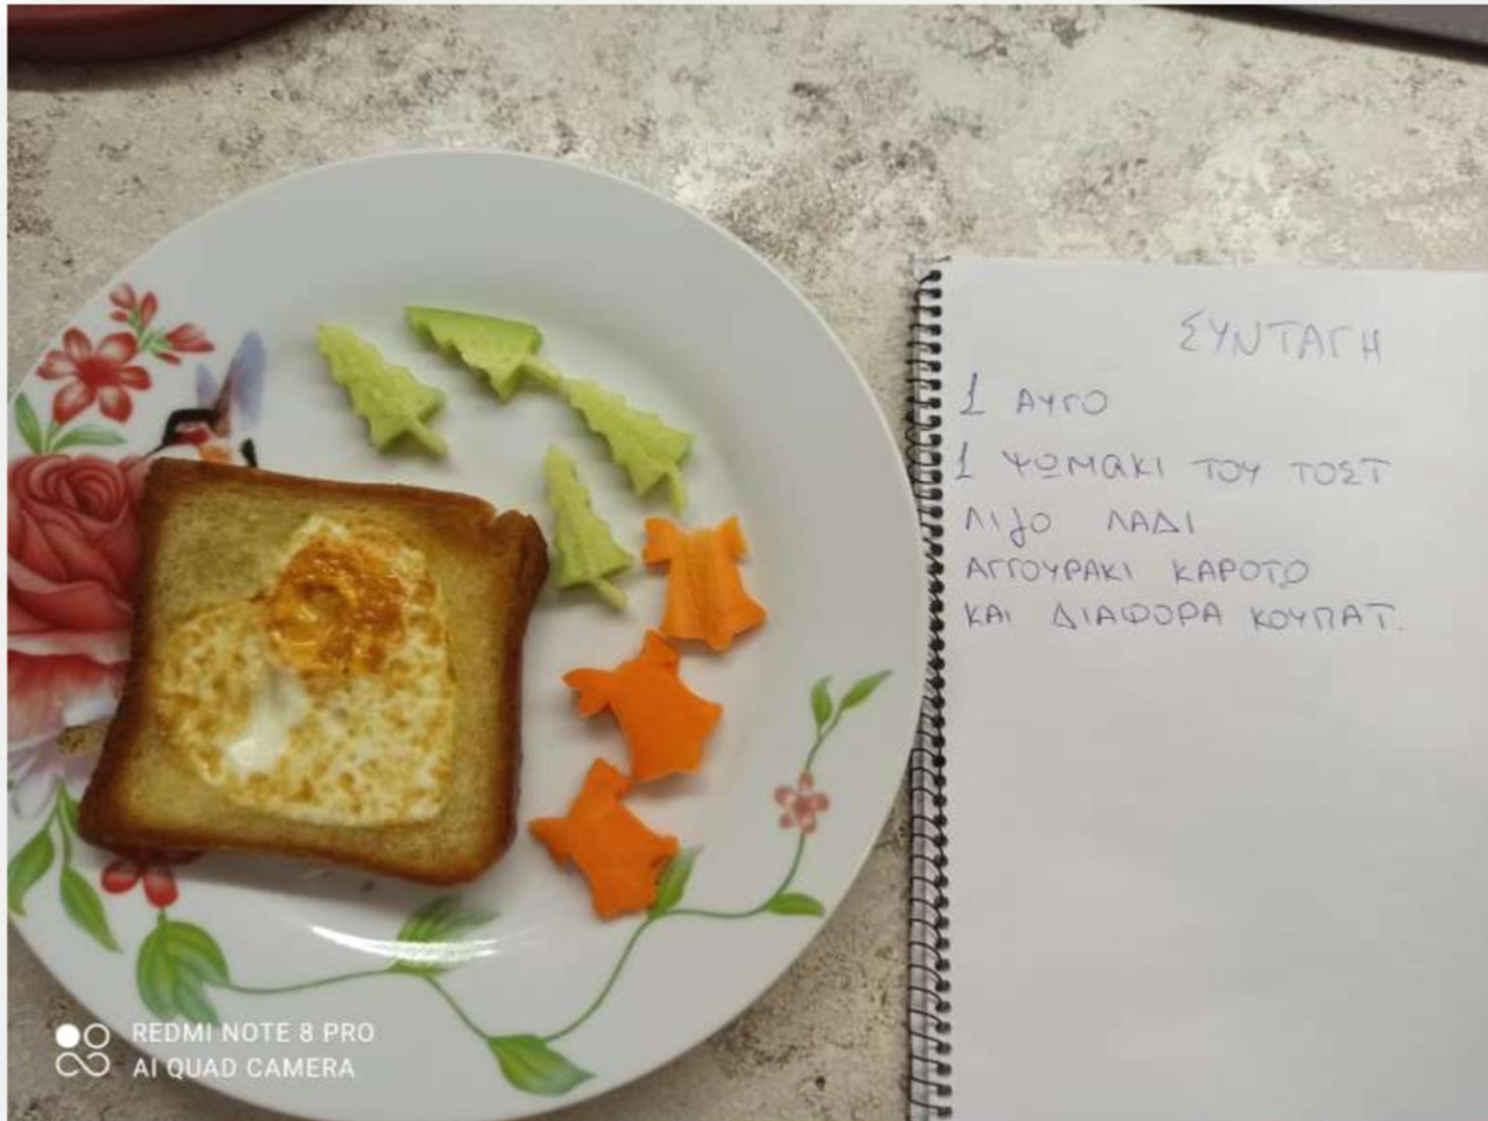 ΣΥΝΤΑΓΗ
1 ΑΥΓΟ
1 ΨΩΜΑΚΙ ΤΟΥ ΤΟΣΤ
ΛΙγΟ ΛΑΔΙ
ΑΓΓΟΥΡΑΚΙ ΚΑΡΟΤΟ
ΚΑΙ ΔΙΑΦΟΡΑ ΚΟΥΠΑΤ.
REDMI NOTE 8 PRO
AI QUAD CAMERA